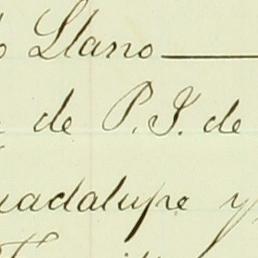 Llano
de P. J. de
uadalupe y